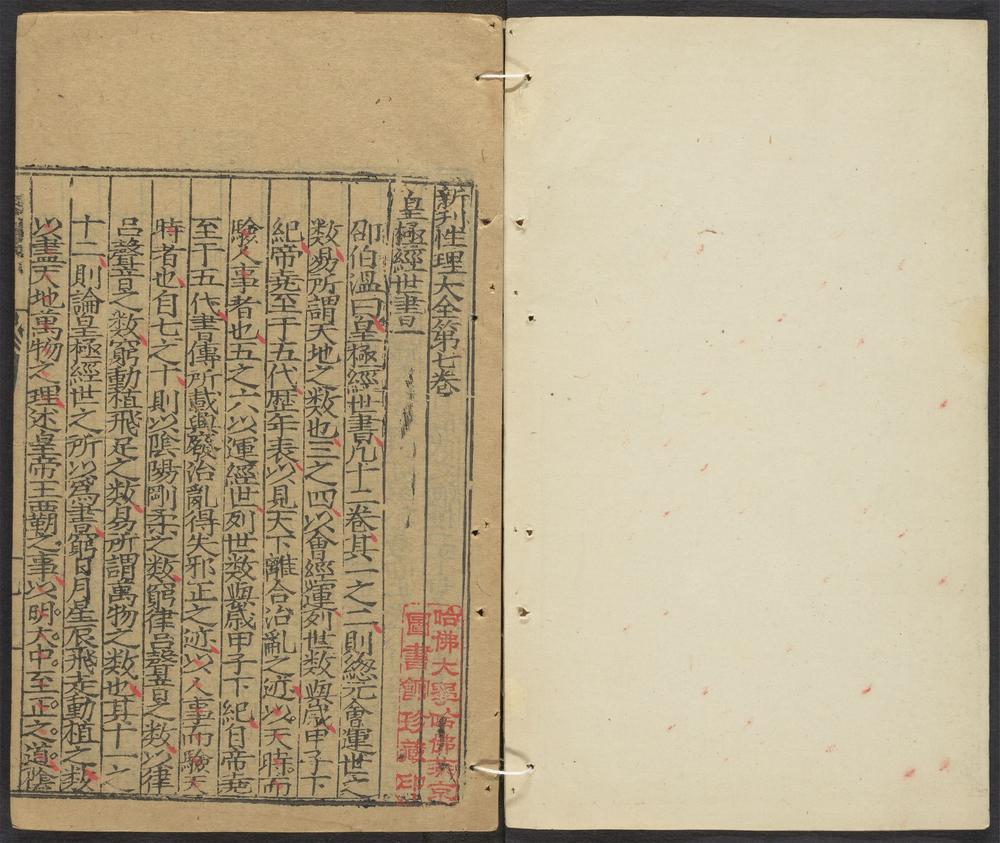 新刊性理大全第七卷
皇極經世書一
邵伯溫曰皇極經世書凡十二卷其一之二則緫元會運世之
数易所謂天地之数也三之四以會經運列世数與歲甲子下
紀帝堯至于五代歴年表以見天下離合治亂之迹以天時而
驗人事者也五之六以運經世列世数與歲甲子下紀自帝堯
至于五代書傳所載興廢治亂得失邪正之迹以人事而驗天
時者也自七之十則以陰陽剛柔之数窮律呂聲音之数以律
呂聲音之数窮動植飛足之数易所謂萬物之数也其十一之
十二則論皇極經世之所以爲書窮日月星辰飛走動植之数
以盡天地萬物之理述皇帝王覇之事以明大中至正之道陰
哈佛大學哈佛燕京
圖書館珍藏印